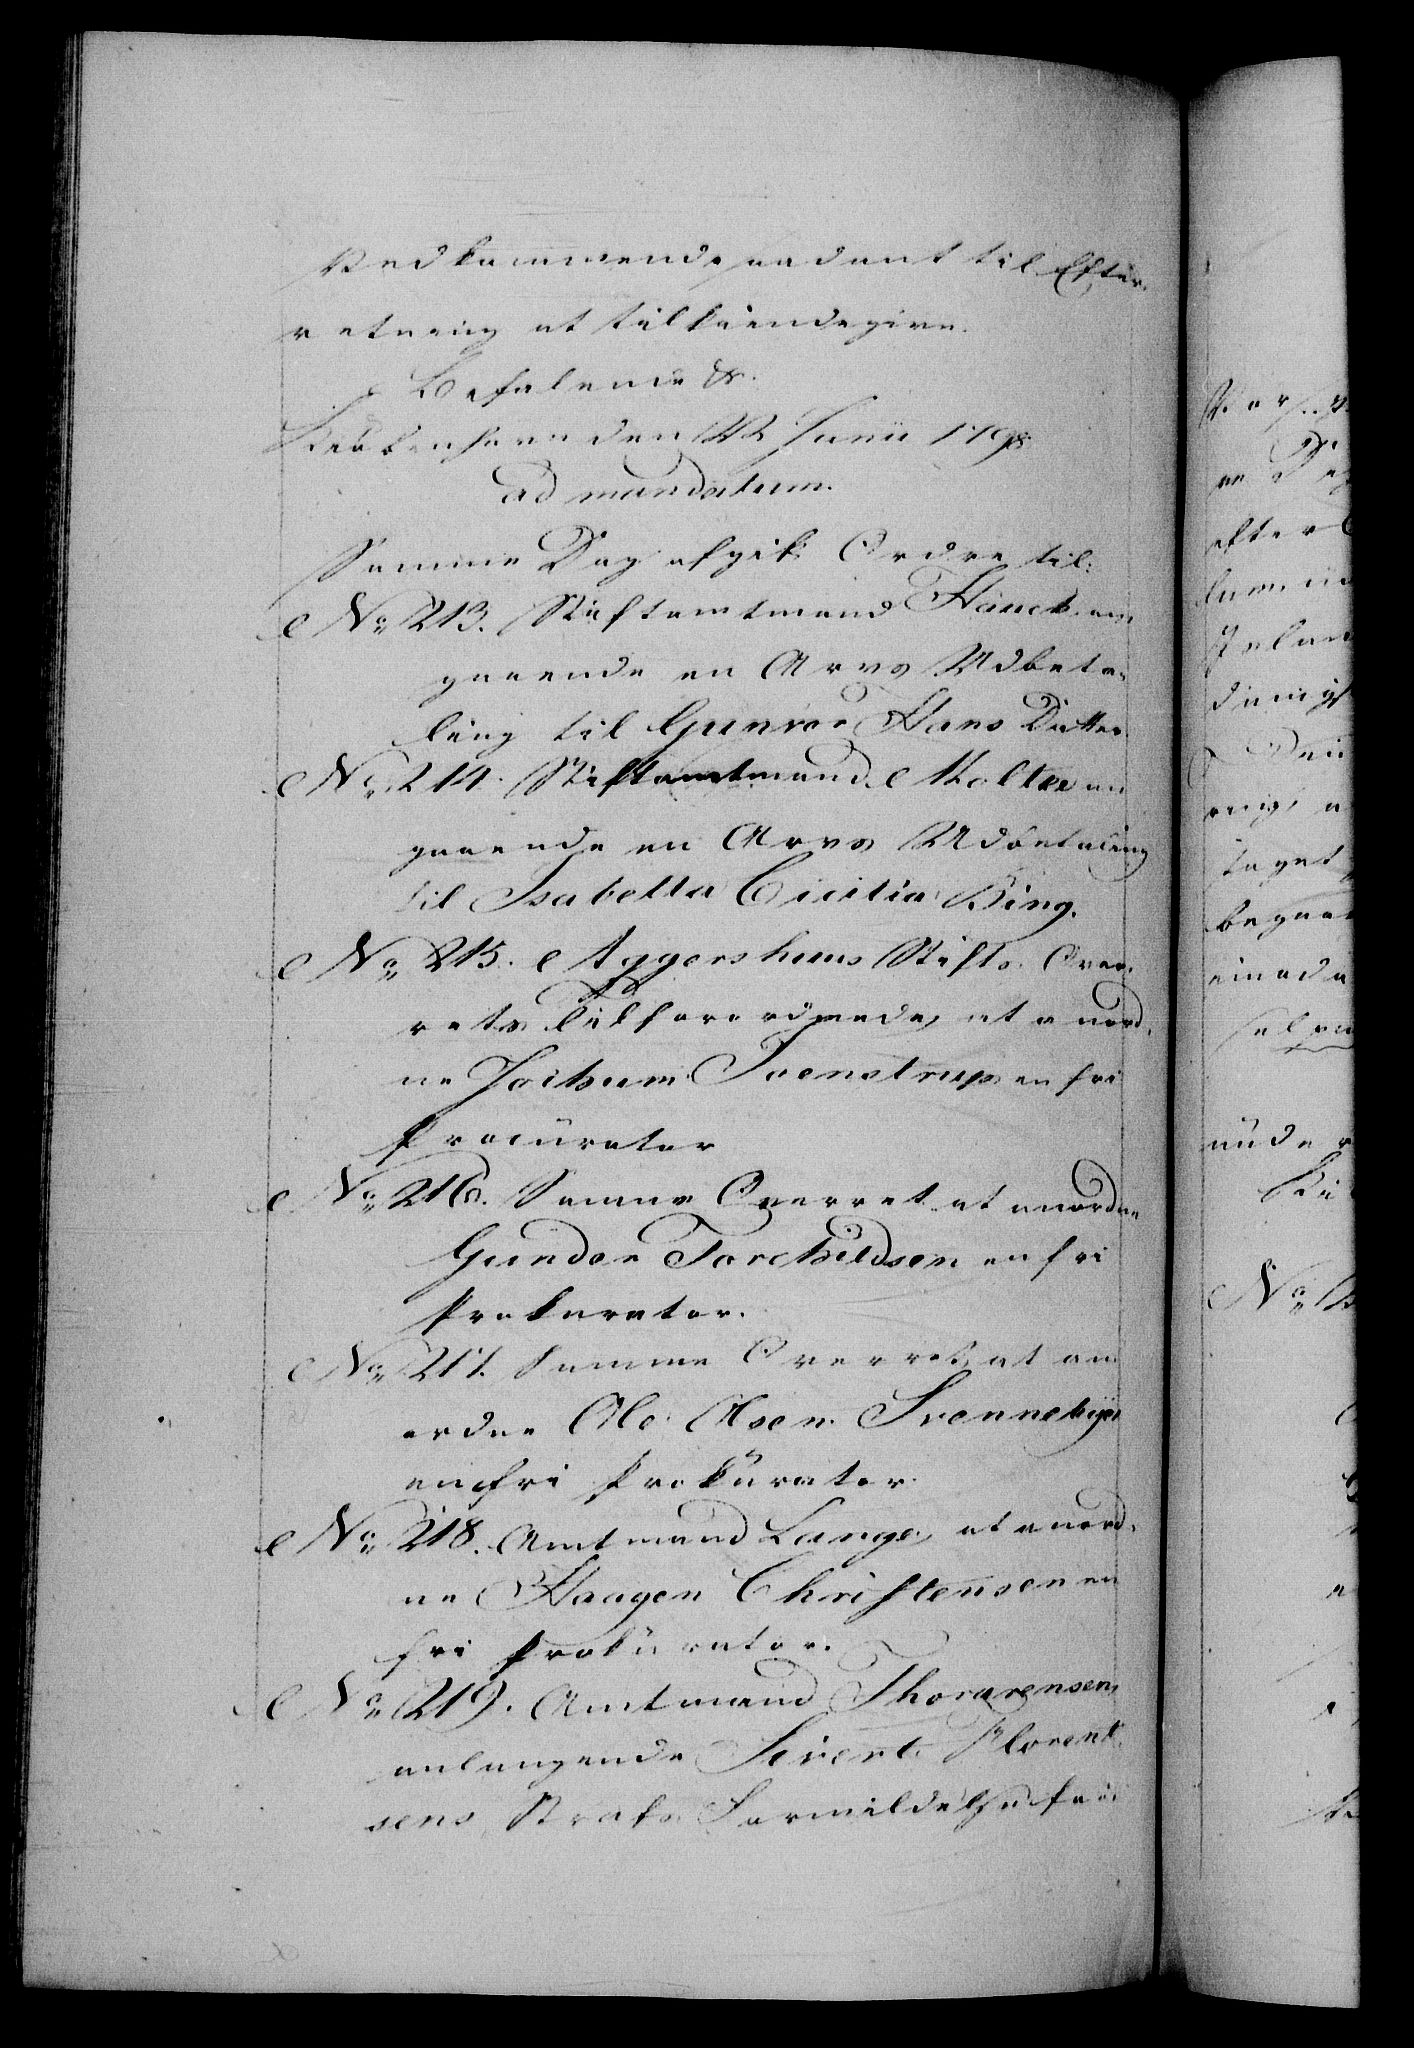 Vedkommende saadant til Efter-
retning at tilkiendegive.
Befalende &c.
Kiøbenhavn den 22 Junii 1798
ad mandatum.
Samme Dag afgik Ordre til:
No 213. Stiftamtmand Hauch an-
gaaende en Arvs Udbeta-
ling til Gunroe Hans Datter
No 214. Stiftamtmand Moltke an
gaaende en Arvs Udbetaling
til Isabella Cicilia King.
No 215. Aggershuus Stifts Over-
rets Tilforordnede, at anord-
ne Jochum Svenstrup en fri
Procurator
No 216. Samme Overret at anordne
Gunder Torchildsen en fri
Prokurator.
No 217. Samme Overret, at an
ordne Ole Olsen Svennebye
en fri Prokurator.
No 218. Amtmand Lange, at anord-
ne Haagen Christensen en
fri Prokurator.
No 219. Amtmand Thorarensen
anlangende Sivert Florent-
sens Strafs Formildelse for

efter
No